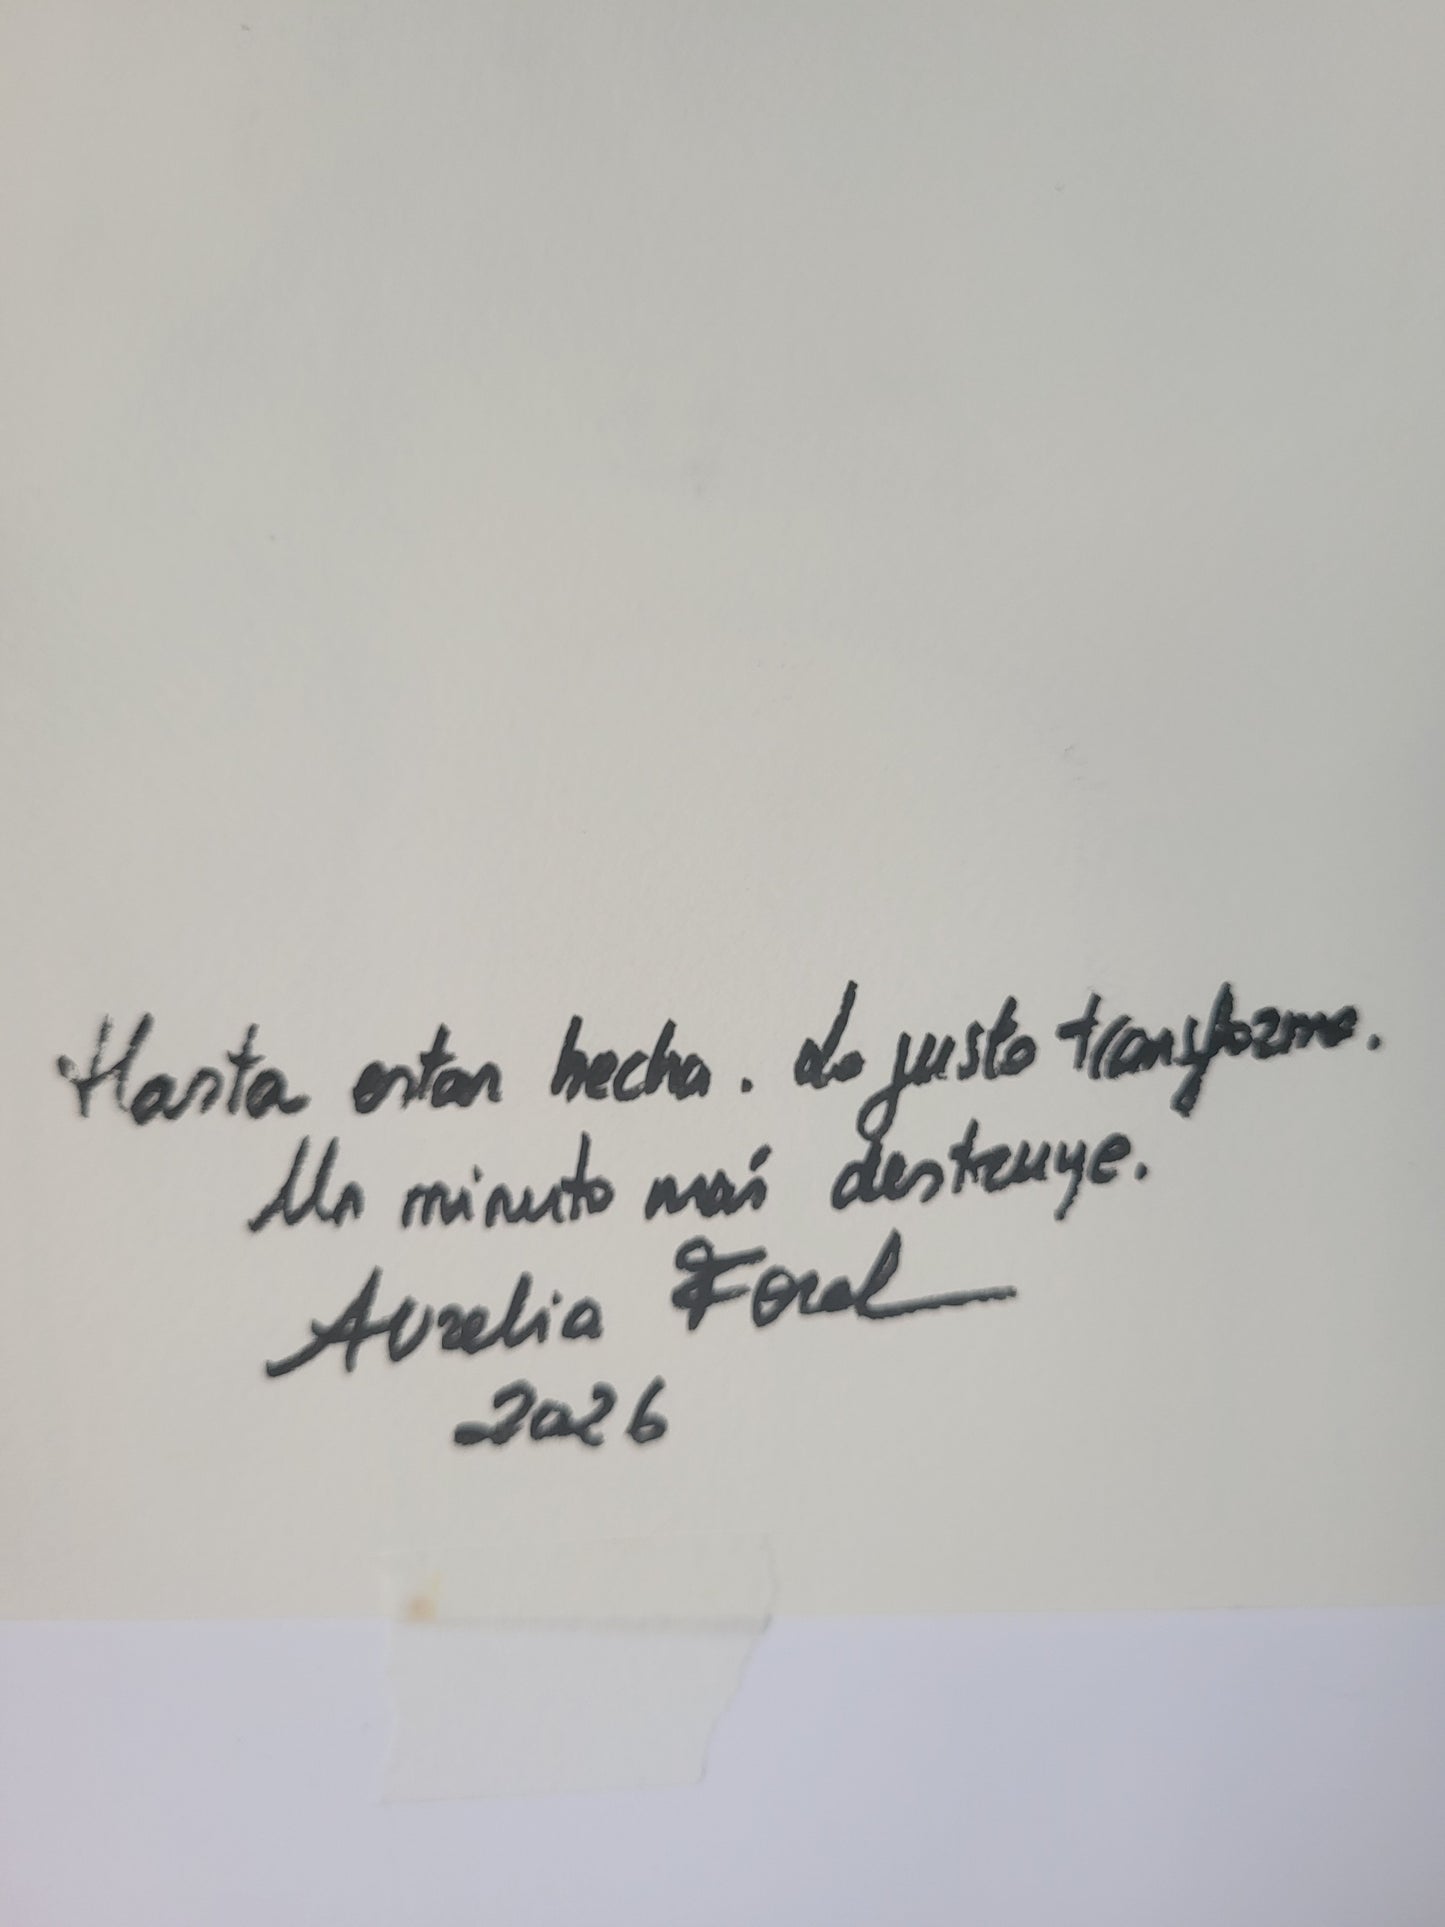 Hasta estar hecha. Lo justo transforma.
Un minuto más destruye.
Aurelia Foral
2026